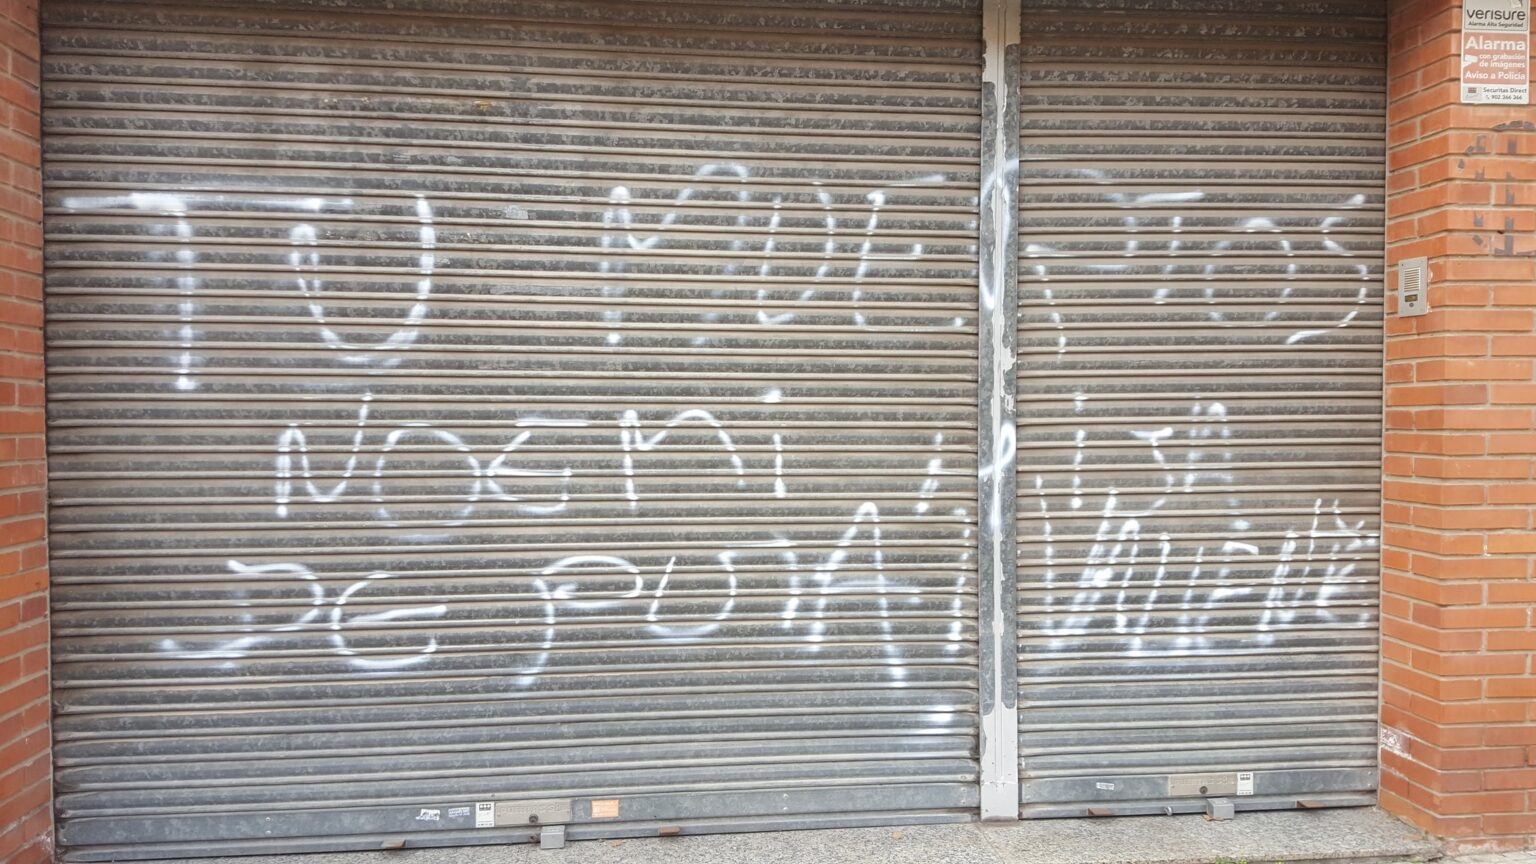 TU MUERTOS
NOEMI HIJA
DE PUTA! VALIENTE
verisure
Alarma Alta Seguridad
Alarma
con grabación
de imágenes
Aviso a Policía
Securitas Direct
902 366 366